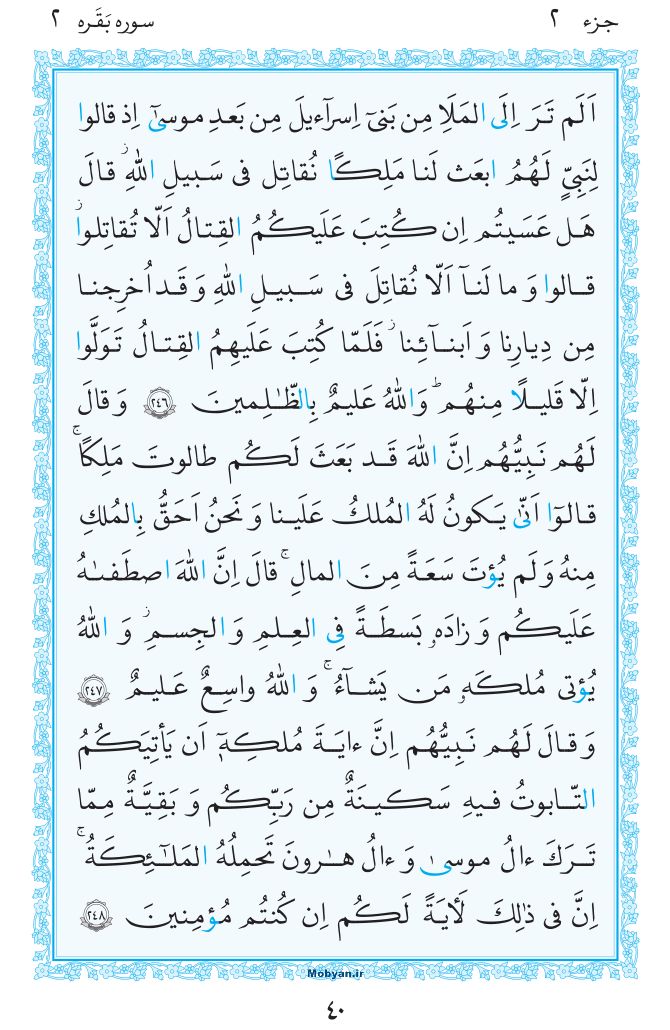 جزء ٢ سوره بَقَره ٢
اَلَم تَرَ اِلَى المَلَاِ مِن بَنىٓ اِسرآءيلَ مِن بَعدِ موسىٰٓ اِذ قالوا
لِنَبِىٍّ لَهُمُ ابعَث لَنا مَلِكًا نُقاتِل فى سَبيلِ اللّٰهِ ۖ قالَ
هَل عَسَيتُم اِن كُتِبَ عَلَيكُمُ القِتالُ اَلّا تُقاتِلوا ۖ
قالوا وَ ما لَنآ اَلّا نُقاتِلَ فى سَبيلِ اللّٰهِ وَ قَد اُخرِجنا
مِن دِيارِنا وَ اَبنآئِنا ۖ فَلَمّا كُتِبَ عَلَيهِمُ القِتالُ تَوَلَّوا
اِلّا قَليلًا مِنهُم ۗ وَ اللّٰهُ عَليمٌ بِالظّٰلِمينَ ﴿٢٤٦﴾ وَ قالَ
لَهُم نَبِيُّهُم اِنَّ اللّٰهَ قَد بَعَثَ لَكُم طالوتَ مَلِكًا ۚ
قالوٓا اَنّىٰ يَكونُ لَهُ المُلكُ عَلَينا وَ نَحنُ اَحَقُّ بِالمُلكِ
مِنهُ وَ لَم يُؤتَ سَعَةً مِنَ المالِ ۚ قالَ اِنَّ اللّٰهَ اصطَفىٰهُ
عَلَيكُم وَ زادَهٗ بَسطَةً فِى العِلمِ وَ الجِسمِ ۖ وَ اللّٰهُ
يُؤتى مُلكَهٗ مَن يَشآءُ ۚ وَ اللّٰهُ واسِعٌ عَليمٌ ﴿٢٤٧﴾
وَ قالَ لَهُم نَبِيُّهُم اِنَّ ءايَةَ مُلكِهٖٓ اَن يَأتِيَكُمُ
التّابوتُ فيهِ سَكينَةٌ مِن رَبِّكُم وَ بَقِيَّةٌ مِمّا
تَرَكَ ءالُ موسىٰ وَ ءالُ هٰرونَ تَحمِلُهُ المَلٰٓئِكَةُ ۚ
اِنَّ فى ذٰلِكَ لَأٓيَةً لَكُم اِن كُنتُم مُؤمِنينَ ﴿٢٤٨﴾
Mobyan.ir
٤٠